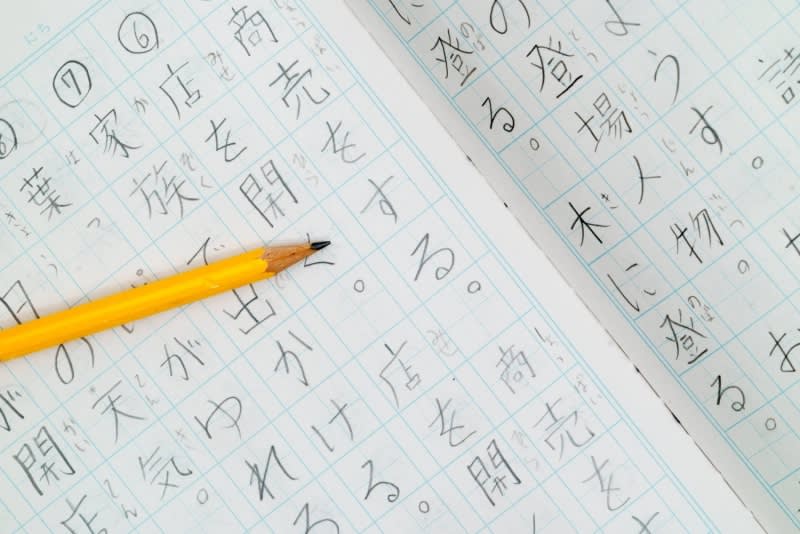 詩
ようす。
の登場人物。お
に登る。木に登る。
商売をする。商売をす
⑥店を開く。店を開く
⑦家族で出かける。
⑧葉がゆれる
の天気。
が開店